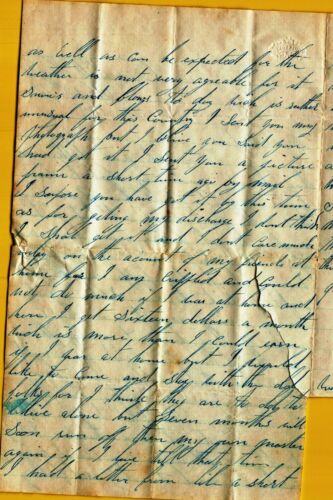 as well as can be expected for the
weather is not very agreable for it
Snows and blows to day wich is rather
unusual for this Country I Sent you my
photograph but I beleve you Said you
had got it I Sent you a picture
frame a Short time ago by mail
I Supose you have got it by this time
as for geting my discharge I dont think
I Shall get it and dont care much
only on the account of my friends at
home for I am Crippled and Could
not do much if I was at home and
here I get Sixteen dollars a month
wich is more than I Could earn
at home but I
like to Come and Stay with my
for I think they are to old to
live alone but Seven months will
Soon run of then my own master
again if I live till that time
I had a letter from a Short